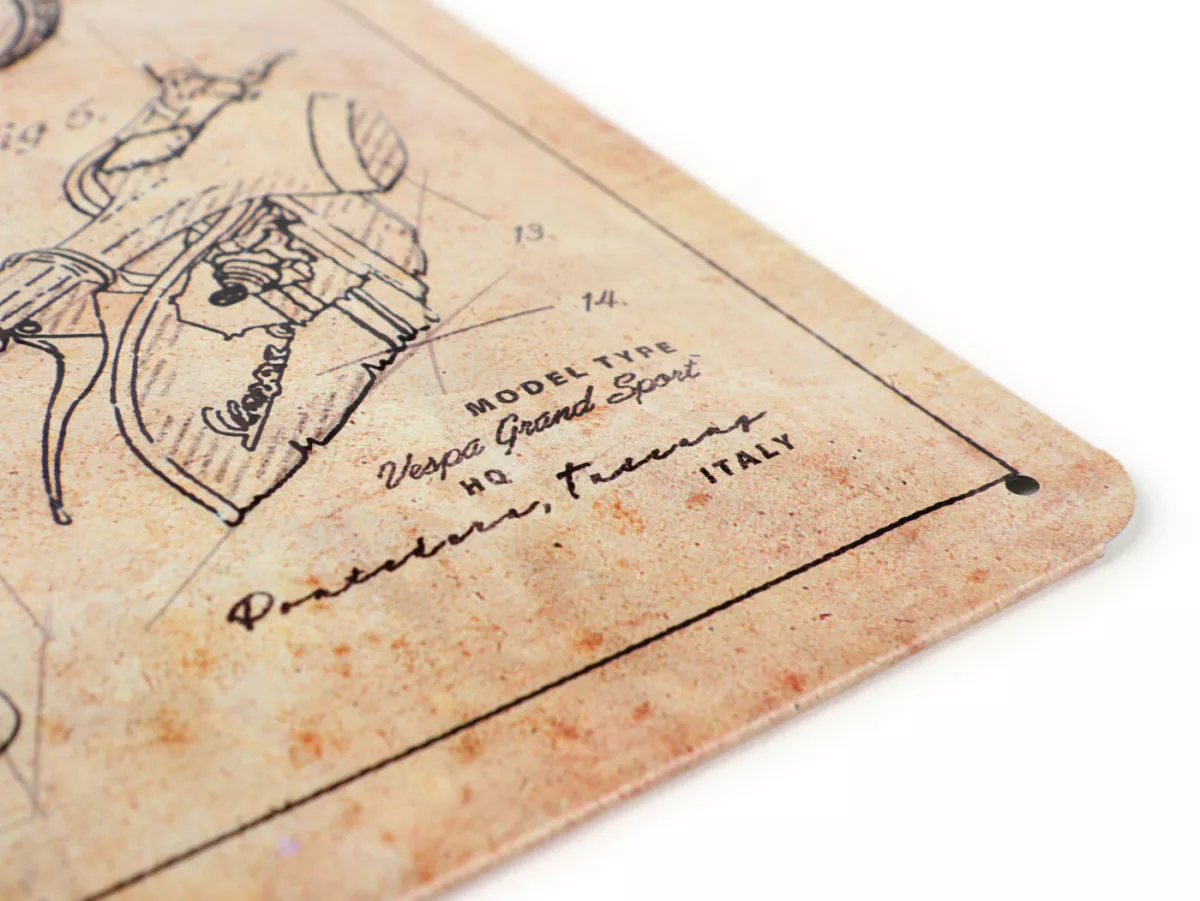 ig 5.
13.
14.
MODEL TYPE
Vespa Grand Sport
HQ
Pontedera, Tuscany
ITALY